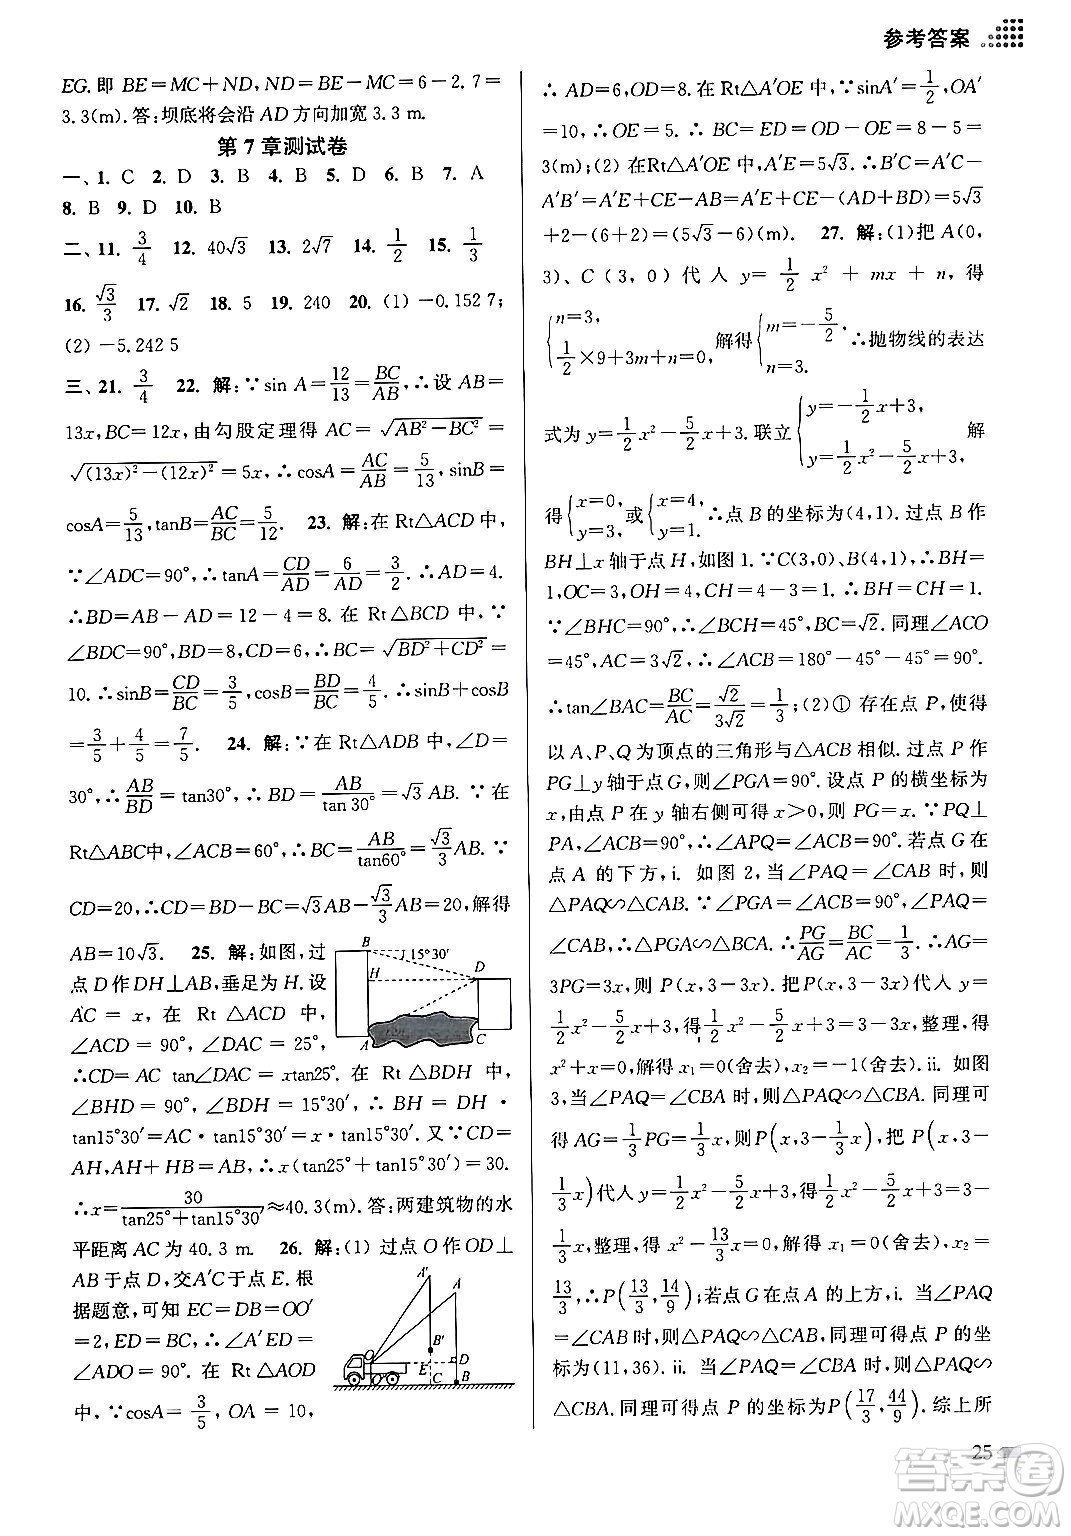 参考答案
EG. 即 BE=MC+ND, ND=BE-MC=6-2.7=
3.3(m). 答: 坝底将会沿 AD 方向加宽 3.3 m.
第 7 章测试卷
一、1. C 2. D 3. B 4. B 5. D 6. B 7. A
8. B 9. D 10. B
二、11. 3/4 12. 40√3 13. 2√7 14. 1/2 15. 1/3
16. √3/3 17. √2 18. 5 19. 240 20. (1) -0.152 7;
(2) -5.242 5
三、21. 3/4 22. 解: ∵sin A=12/13=BC/AB, ∴设 AB=
13x, BC=12x, 由勾股定理得 AC=√(AB²-BC²)=
√((13x)²-(12x)²)=5x, ∴cosA=AC/AB=5/13, sinB=
cosA=5/13, tanB=AC/BC=5/12. 23. 解: 在 Rt△ACD 中,
∵∠ADC=90°, ∴tanA=CD/AD=6/AD=3/2. ∴AD=4.
∴BD=AB-AD=12-4=8. 在 Rt△BCD 中, ∵
∠BDC=90°, BD=8, CD=6, ∴BC=√(BD²+CD²)=
10. ∴sinB=CD/BC=3/5, cosB=BD/BC=4/5. ∴sinB+cosB
=3/5+4/5=7/5. 24. 解: ∵在 Rt△ADB 中, ∠D=
30°, ∴AB/BD=tan30°, ∴BD=AB/tan 30°=√3AB. ∵在
Rt△ABC中, ∠ACB=60°, ∴BC=AB/tan60°=√3/3AB. ∵
CD=20, ∴CD=BD-BC=√3AB-√3/3AB=20, 解得
AB=10√3. 25. 解: 如图, 过
点 D 作 DH⊥AB, 垂足为 H. 设
AC = x, 在 Rt △ACD 中,
∠ACD = 90°, ∠DAC = 25°,
∴CD=AC tan∠DAC=xtan25°. 在 Rt △BDH 中,
∠BHD = 90°, ∠BDH = 15°30′, ∴ BH = DH·
tan15°30′=AC·tan15°30′=x·tan15°30′. 又∵CD=
AH, AH+HB=AB, ∴x(tan25°+tan15°30′)=30.
∴x=30/(tan25°+tan15°30′)≈40.3(m). 答: 两建筑物的水
平距离 AC 为 40.3 m. 26. 解: (1) 过点 O 作 OD⊥
AB 于点 D, 交A′C于点 E. 根
据题意, 可知 EC=DB=OO′
=2, ED=BC, ∴∠A′ED=
∠ADO=90°. 在 Rt △AOD
中, ∵cosA=3/5, OA=10,
B
15°30′
H
D
A
C
A′
A
B′
D
E
C
B
∴AD=6, OD=8. 在 Rt△A′OE 中, ∵sinA′=1/2, OA′
=10, ∴OE=5. ∴BC=ED=OD-OE=8-5=
3(m); (2) 在Rt△A′OE 中, A′E=5√3. ∴B′C=A′C-
A′B′=A′E+CE-AB=A′E+CE-(AD+BD)=5√3
+2-(6+2)=(5√3-6)(m). 27. 解: (1)把 A(0,
3)、C(3, 0)代入 y=1/2x²+mx+n, 得
{n=3, 1/2×9+3m+n=0, 解得{m=-5/2, n=3. ∴抛物线的表达
式为 y=1/2x²-5/2x+3. 联立{y=-1/2x+3, y=1/2x²-5/2x+3, 解
得{x=0, y=3, 或{x=4, y=1. ∴点 B 的坐标为(4, 1). 过点 B 作
BH⊥x 轴于点 H, 如图 1. ∵C(3, 0), B(4, 1), ∴BH=
1, OC=3, OH=4, CH=4-3=1. ∴BH=CH=1.
∵∠BHC=90°, ∴∠BCH=45°, BC=√2. 同理∠ACO
=45°, AC=3√2, ∴∠BAC=180°-45°-45°=90°,
∴tan∠BAC=BC/AC=√2/3√2=1/3; (2)① 存在点 P, 使得
以 A、P、Q 为顶点的三角形与△ACB 相似. 过点 P 作
PG⊥y 轴于点 G, 则∠PGA=90°. 设点 P 的横坐标为
x, 由点 P 在 y 轴右侧可得 x>0, 则 PG=x. ∵PQ⊥
PA, ∠ACB=90°, ∴∠APQ=∠ACB=90°. 若点 G 在
点 A 的下方, i. 如图 2, 当∠PAQ=∠CAB 时, 则
△PAQ∽△CAB. ∵∠PGA=∠ACB=90°, ∠PAQ=
∠CAB, ∴△PGA∽△BCA. ∴PG/AG=BC/AC=1/3, ∴AG=
3PG=3x, 则 P(x, 3-3x). 把 P(x, 3-3x)代入 y=
1/2x²-5/2x+3, 得1/2x²-5/2x+3=3-3x, 整理, 得
x²+x=0, 解得 x₁=0(舍去), x₂=-1(舍去). ii. 如图
3, 当∠PAQ=∠CBA 时, 则△PAQ∽△CBA. 同理可
得 AG=1/3PG=1/3x, 则P(x, 3-1/3x), 把 P(x, 3-
1/3x)代入 y=1/2x²-5/2x+3, 得1/2x²-5/2x+3=3-
1/3x, 整理, 得 x²-13/3x=0, 解得 x₁=0(舍去), x₂=
13/3, ∴P(13/3, 14/9); 若点 G 在点 A 的上方, i. 当∠PAQ
=∠CAB 时, 则△PAQ∽△CAB, 同理可得点 P 的坐
标为(11, 36). ii. 当∠PAQ=∠CBA 时, 则△PAQ∽
△CBA. 同理可得点 P 的坐标为P(17/3, 44/9). 综上所
25
答案圈
MXQE.COM